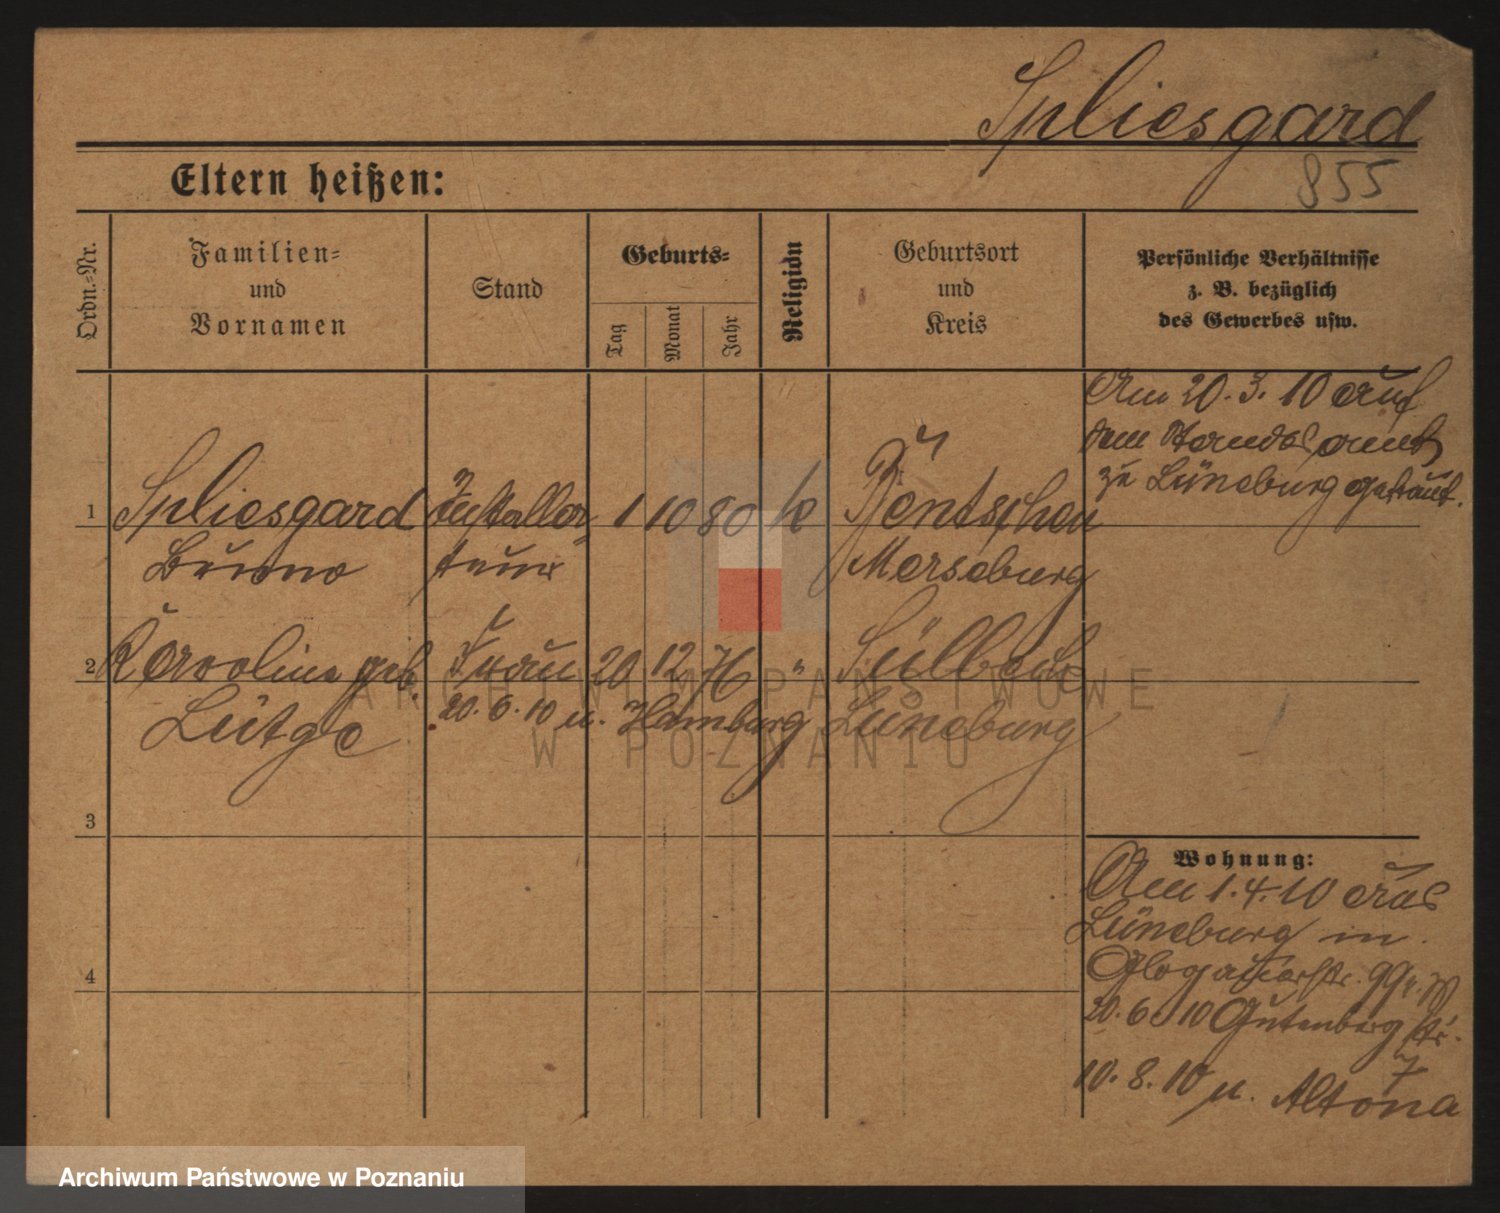 Spliesgard
855
Eltern heißen:
Ordn.-Nr.
Familien-
und
Vornamen
Stand
Geburts-
Tag
Monat
Jahr
Religion
Geburtsort
und
Kreis
Persönliche Verhältnisse
z. B. bezüglich
des Gewerbes usw.
Am 20.3.10 auf
dem Standesamt
zu Lüneburg getraut.
1 Spliesgard Installa- 1 10 80 k Bentschen
Bruno teur Merseburg
2 Karoline geb. Frau 20 12 76 " Sülbeck
Lütge 20.6.10 n. Hamburg Lüneburg
3
4
Wohnung:
Am 1.4.10 aus
Lüneburg in
Glogauerstr. 99
20.6.10 Gutenbergstr.
7
10.8.10 n. Altona
ARCHIWUM PAŃSTWOWE
W POZNANIU
Archiwum Państwowe w Poznaniu